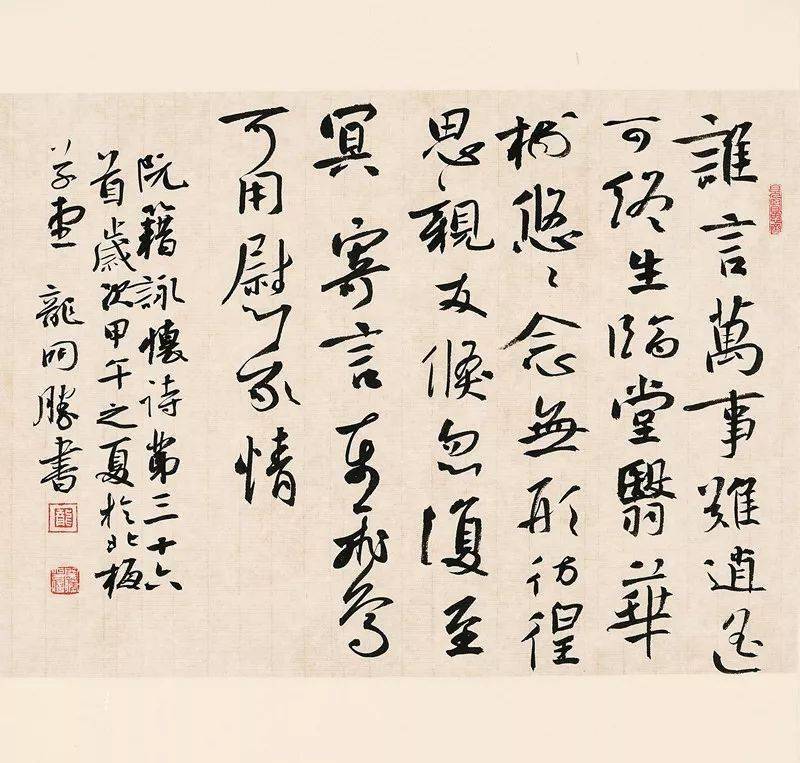 誰言萬事難逍遙
可終生臨堂翳華
樹悠〻念無形彷徨
思親友倏忽復至
冥寄言東飛鳥
可用慰我情
阮籍詠懷詩第三十六
首歲次甲午之夏於北梅
草堂龍開勝書
龍